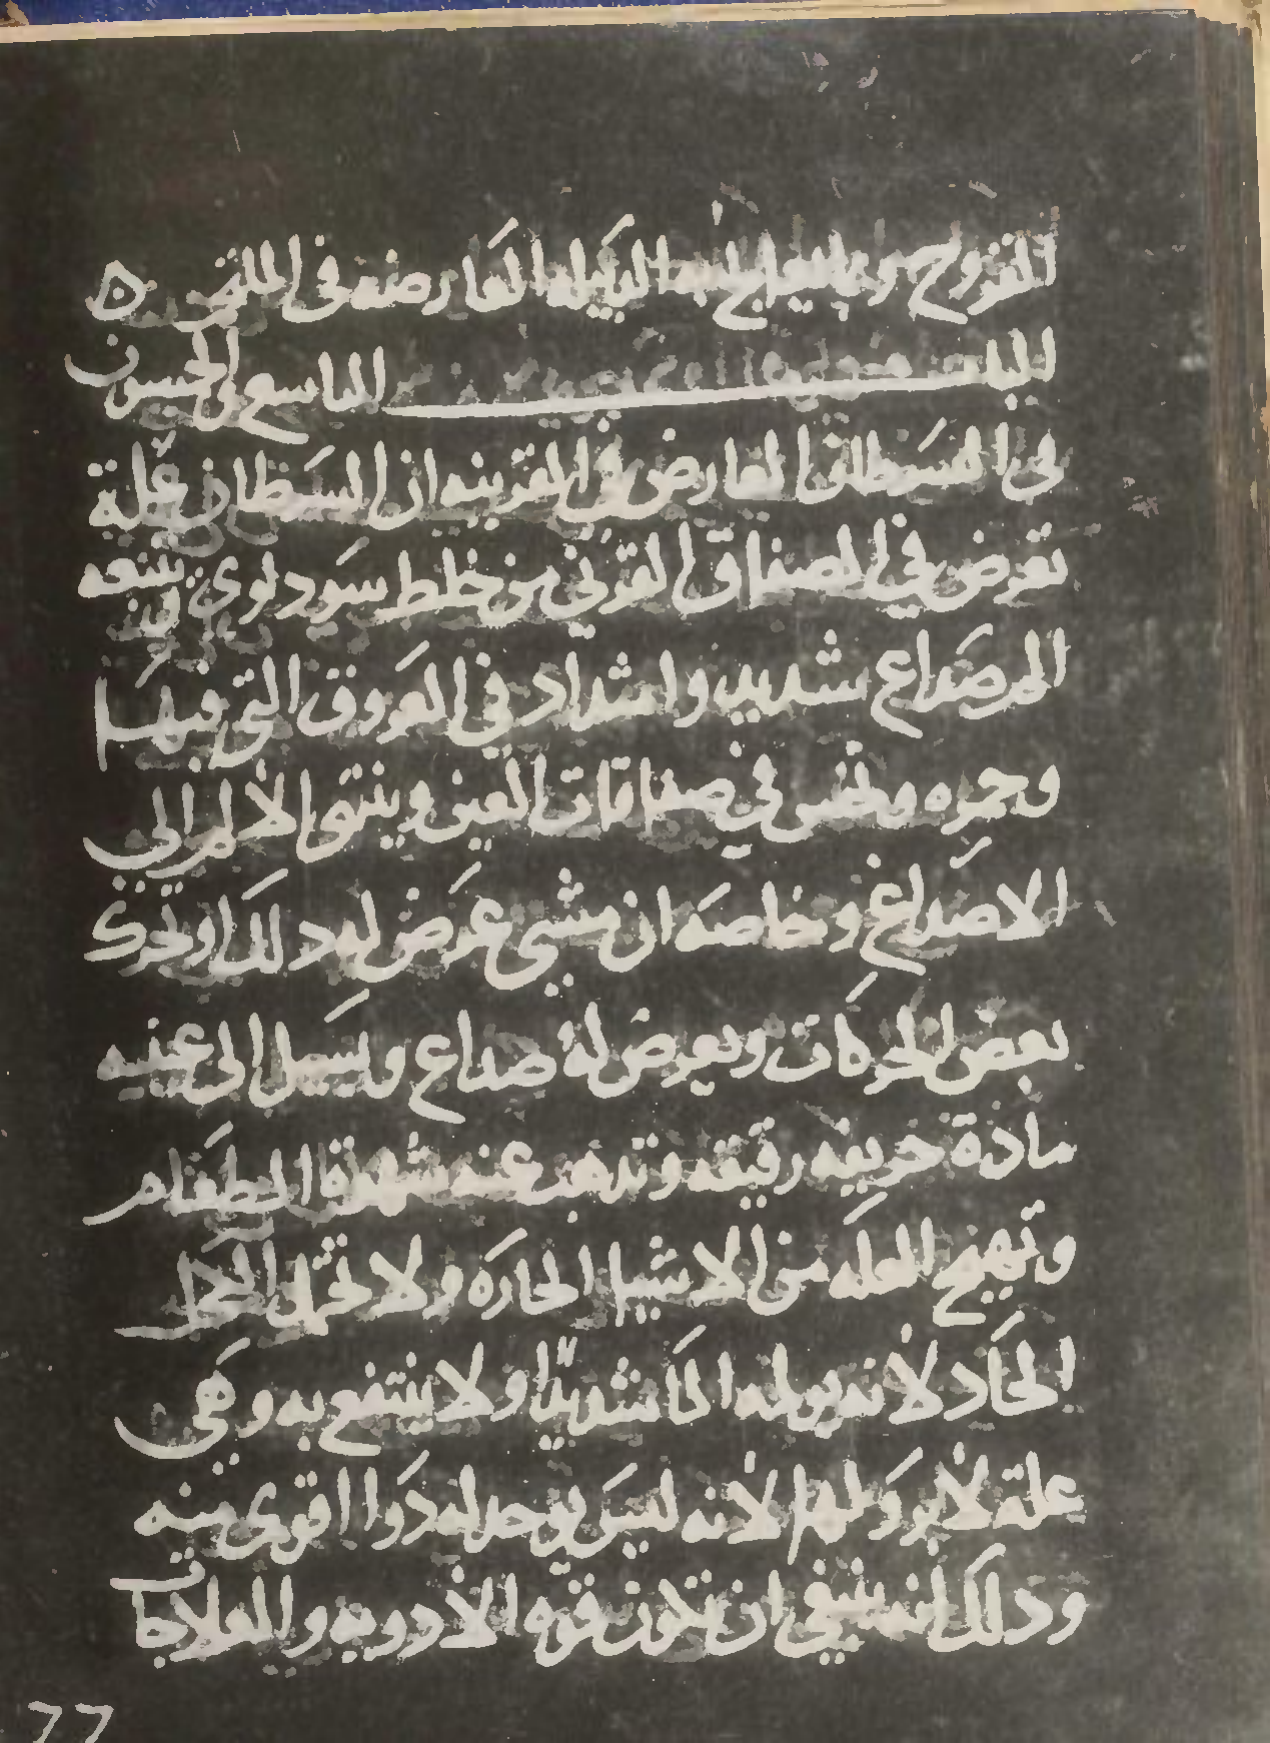 القروح وما يعالج به العارضه في الملتحم ه
الباب التاسع والخمسون
في السرطان العارض في القرنيه ان السرطان علة
تعرض في الصفاق القرني من خلط سوداوي ويتبعه
الم صداع شديد وامتداد في العروق التي فيها
وحمره ونخس في صفاقات العين وينتهي الالم الى
الاصداغ وخاصه ان مشى عرض له ذلك او تحرك
بعض الحركات ويعرض له صداع ويسيل الى عينيه
مادة حريفه رقيقه وتذهب عنه شهوة الطعام
وتهيج العله من الاشيا الحاره ولا تحتمل الكحل
الحاد لانه يولمه الما شديدا ولا ينتفع به وهي
علة لا برو لها لانه ليس يوجد له دوا اقوى منه
وذلك انه ينبغي ان تكون قوه الادويه والعلاجات
77